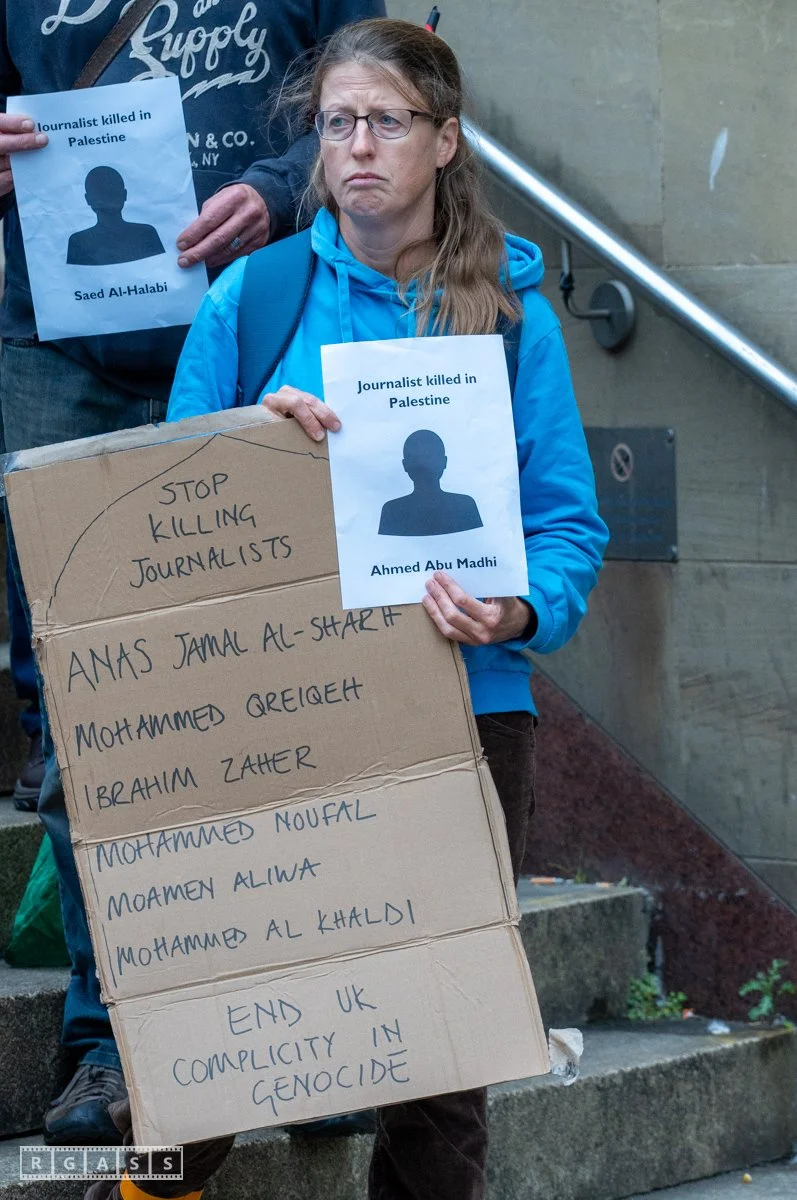 Supply
N & CO.
, NY
Journalist killed in
Palestine
Saed Al-Halabi
Journalist killed in
Palestine
Ahmed Abu Madhi
STOP
KILLING
JOURNALISTS
ANAS JAMAL AL-SHARIF
MOHAMMED QREIQEH
IBRAHIM ZAHER
MOHAMMED NOUFAL
MOAMEN ALIWA
MOHAMMED AL KHALDI
END UK
COMPLICITY IN
GENOCIDE
RGASS